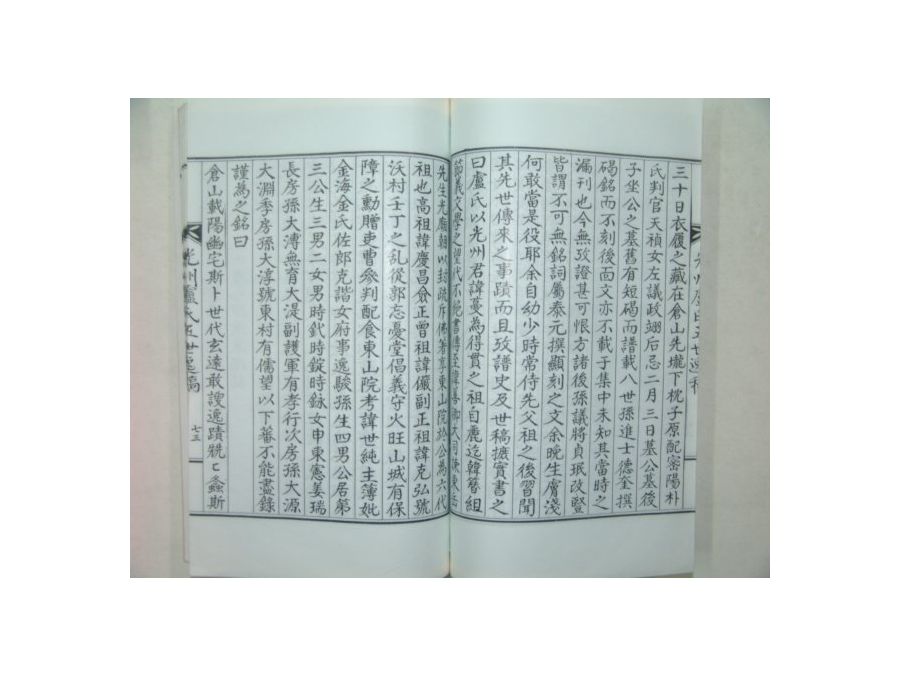 三十日衣履之藏在倉山先壠下枕子原配密陽朴
氏判官天禎女左議政翊后忌二月三日墓公墓後
子坐公之墓舊有短碣而譜載八世孫進士德奎撰
碣銘而不刻後面文亦不載于集中未知其當時之
漏刊也今無攷證甚可恨方諸後孫議將貞珉改竪
皆謂不可無銘詞屬泰元撰顯刻之文余晩生膚淺
何敢當是役耶余自幼少時常侍先父祖之後習聞
其先世傳來之事蹟而且攷譜史及世稿摭實書之
曰盧氏以光州君諱蔓為得貫之祖自麗迄韓簪組
節義文學之
先生光廟朝以封疏斥佛著享東山院於公為六代
祖也高祖諱慶昌僉正曾祖諱儼副正祖諱克弘號
沃村壬丁之乱從郭忘憂堂倡義守火旺山城有保
障之勳贈吏曹參判配食東山院考諱世純主簿妣
金海金氏佐郎克諧女府事逸駿孫生四男公居第
三公生三男二女男時釴時錠時錄女申東憲姜瑞
長房孫大溥無育大湜副護軍有孝行次房孫大源
大淵季房孫大淳號東村有儒望以下蕃不能盡錄
謹為之銘曰
倉山載陽幽宅斯卜世代玄遠敢謏逸蹟兟兟螽斯
光州盧氏五世逸稿
七五